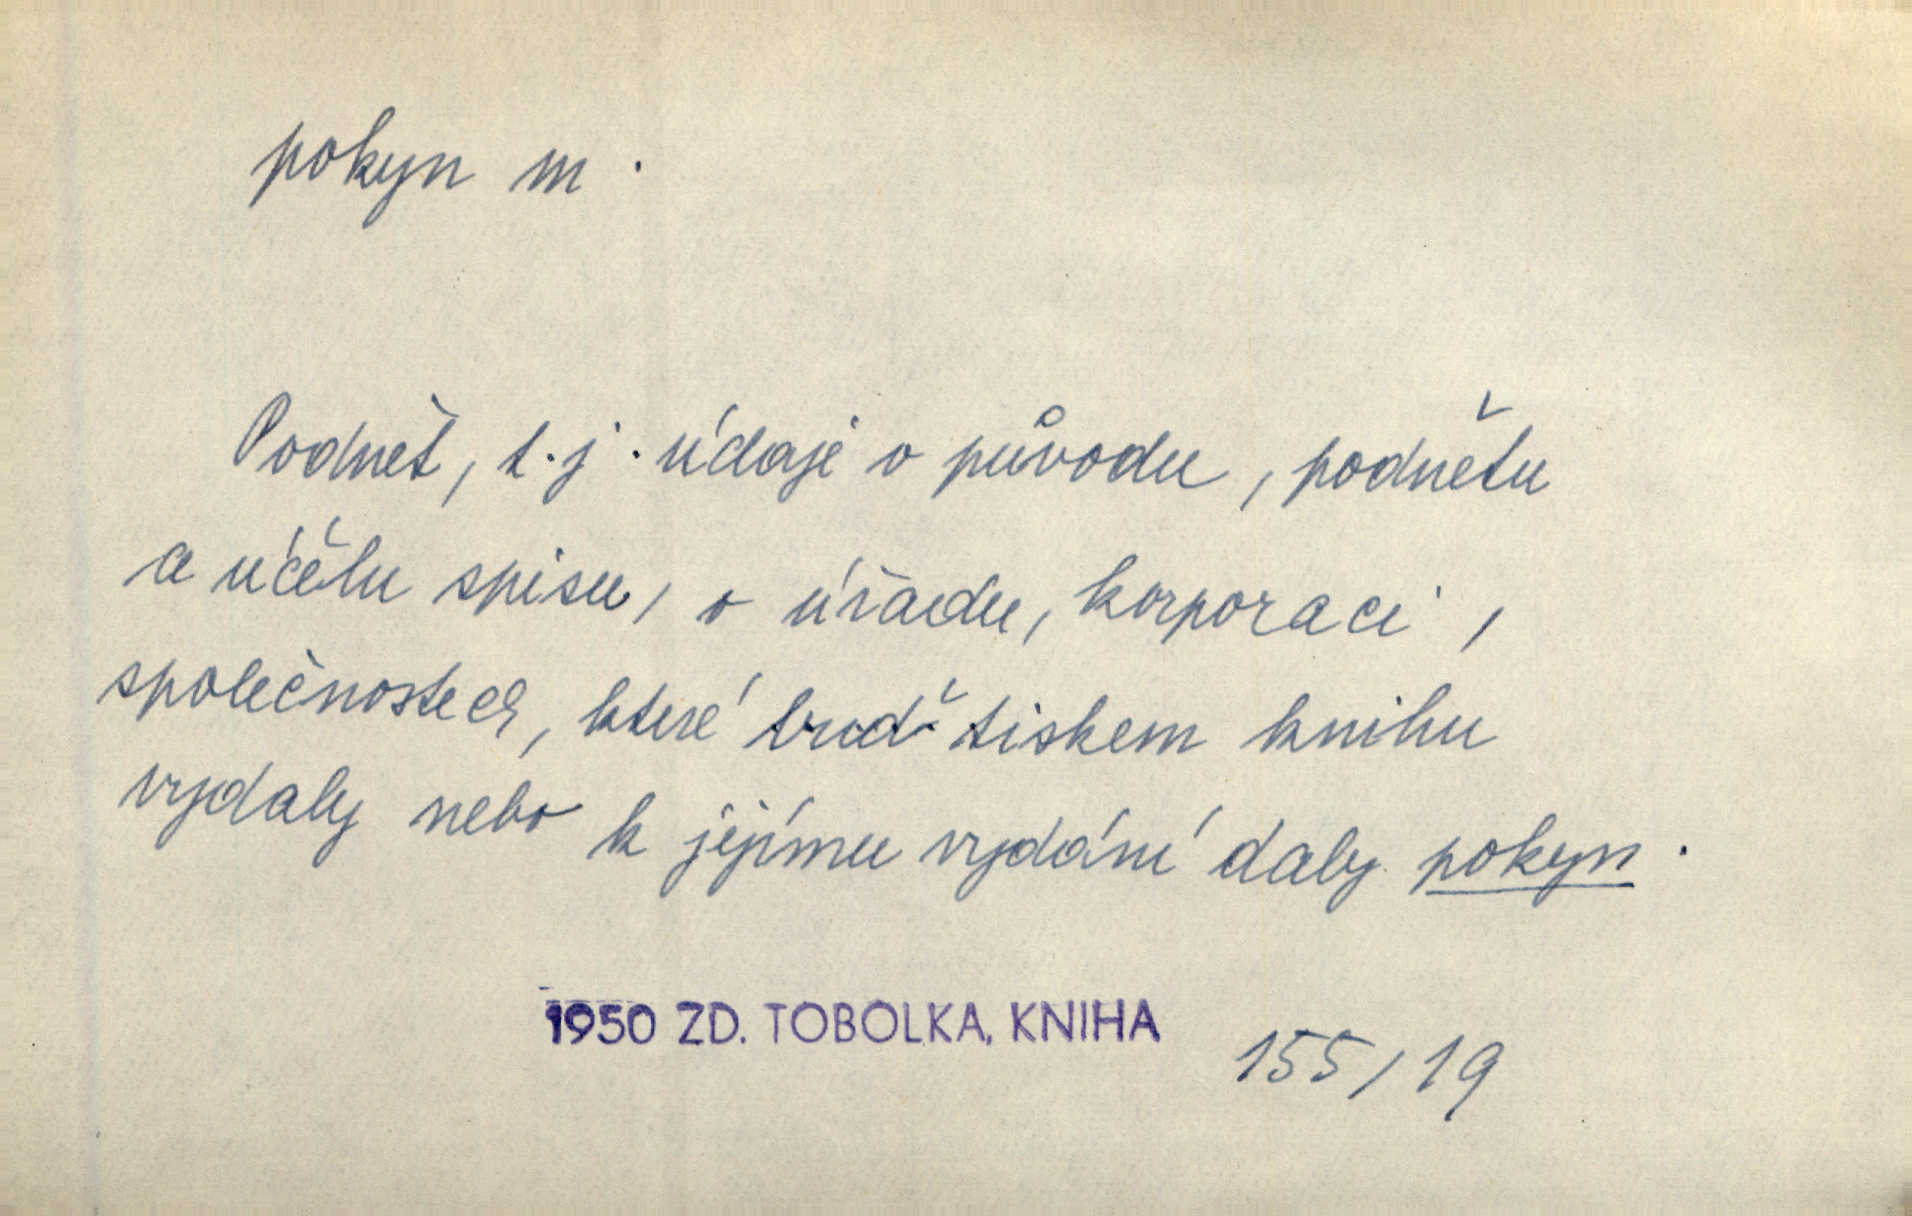 pokyn m.
Podnět, t.j. údaje o původu, podnětu
a účelu spisu, o úřadu, korporaci,
společnostech, které buď tiskem knihu
vydaly nebo k jejímu vydání daly pokyn.
1950 ZD. TOBOLKA, KNIHA
155/19